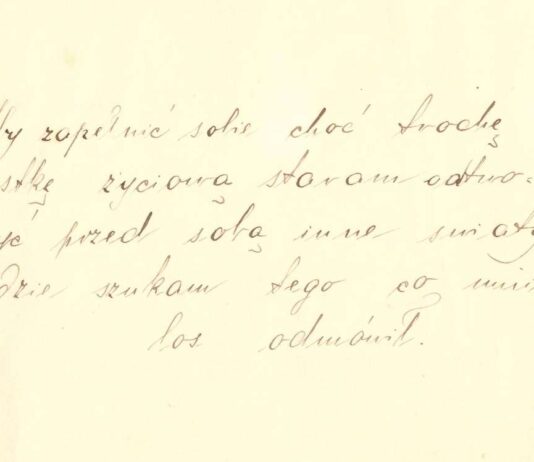 by zapełnić sobie choć trochę
stkę życiową staram odtwo-
yć przed sobą inne światy
dzie szukam tego co mni
los odmówił.